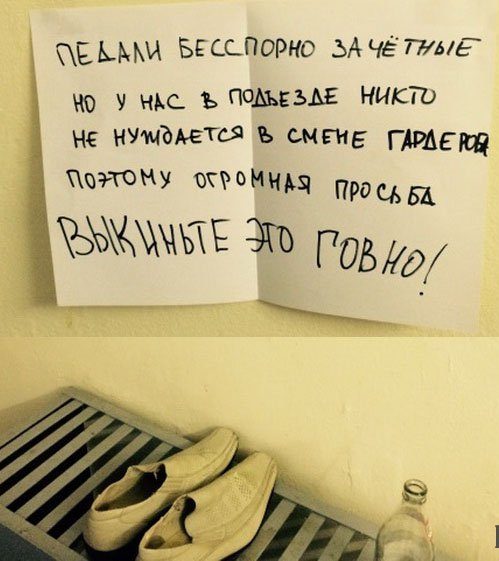 ПЕДАЛИ БЕССПОРНО ЗАЧЁТНЫЕ
НО У НАС В ПОДЬЕЗДЕ НИКТО
НЕ НУЖДАЕТСЯ В СМЕНЕ ГАРДЕРОБА
ПОЭТОМУ ОГРОМНАЯ ПРОСЬБА
ВЫКИНЬТЕ ЭТО ГОВНО!